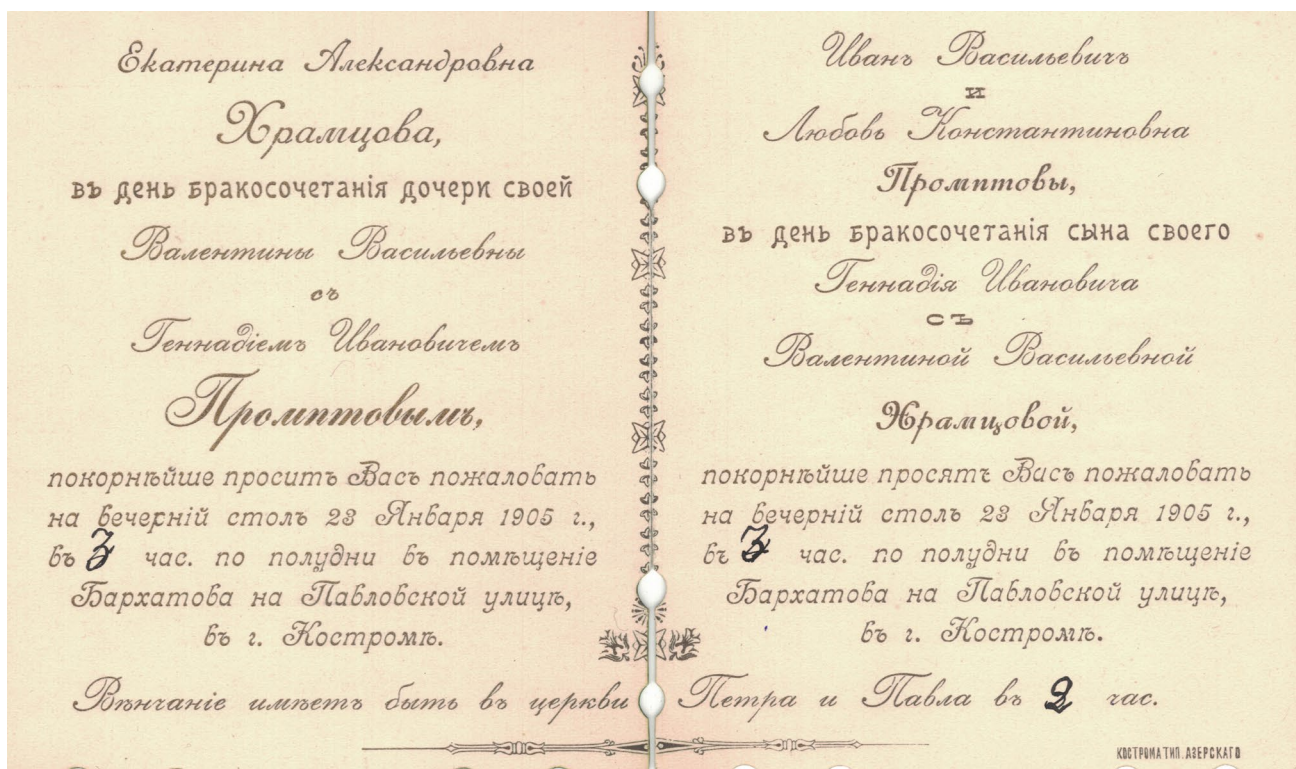 Екатерина Александровна
Храмцова,
въ день бракосочетанія дочери своей
Валентины Васильевны
съ
Геннадіемъ Ивановичемъ
Промптовымъ,
покорнѣйше проситъ Васъ пожаловать
на вечерній столъ 23 Января 1905 г.,
въ 3 час. по полудни въ помѣщеніе
Бархатова на Павловской улицѣ,
въ г. Костромѣ.
Иванъ Васильевичъ
и
Любовь Константиновна
Промптовы,
въ день бракосочетанія сына своего
Геннадія Ивановича
съ
Валентиной Васильевной
Храмцовой,
покорнѣйше просятъ Васъ пожаловать
на вечерній столъ 23 Января 1905 г.,
въ 3 час. по полудни въ помѣщеніе
Бархатова на Павловской улицѣ,
въ г. Костромѣ.
Вѣнчаніе имѣетъ быть въ церкви Петра и Павла въ 2 час.
КОСТРОМА ТИП. АЗЕРСКАГО